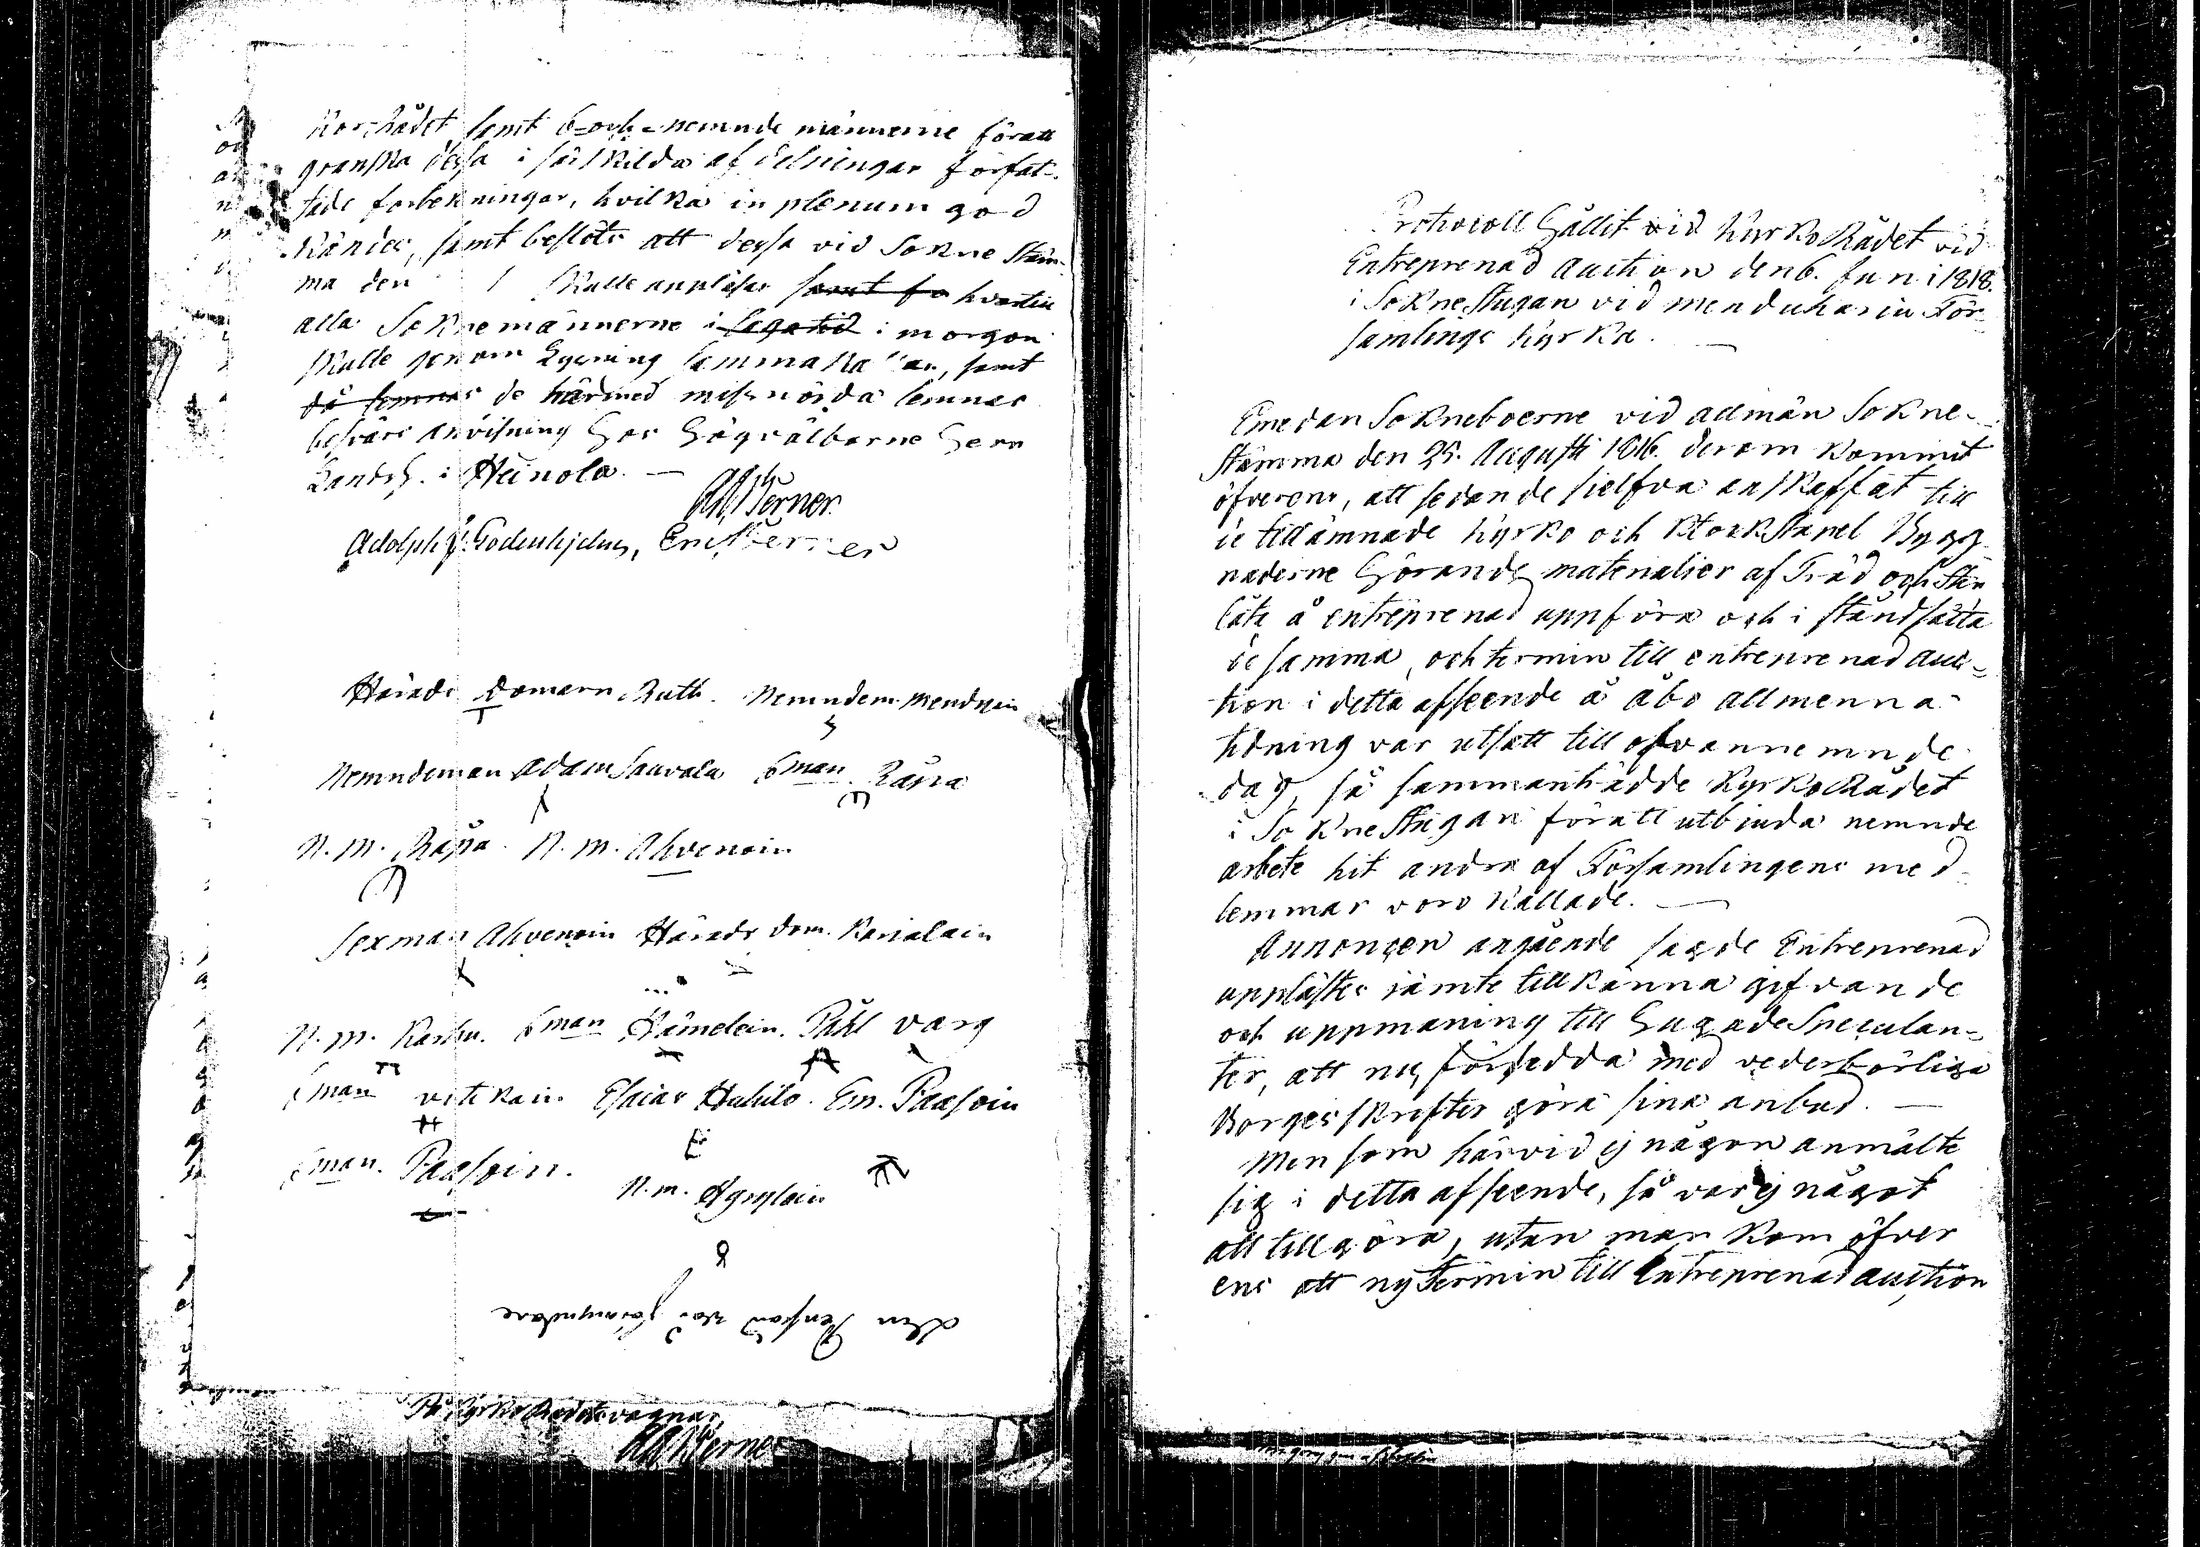 KorRådet samt 6-och-nemnde männerne föratt
granska dessa i särskilda afdelningar förfat-
tade forteckningar, hvilka in plenum god
kändes, samt beslöts att dessa vid Sokne Stäm-
ma den skulle uppläsas samt fo hvartill
alla Soknemännerne i i morgon
skulle genom Lysning sammakallas, samt
då lemnas de härmed missnöjda lemnas
besvärs anvisning Hos Högvälborne Herr
Landsh. i Heinola. —
Werner
Adolph Godenhjelm, Eric Werner
Härads Domarn Ruth. Nemndem. Menduin
Nemndeman Adam Sauvala 6man Räpä
N. M. Räpä. N. M. Ahvenain
Sexman Ahvenain Härads dom. Karialain
N. M. Karhu. 6man Hämelain. Påhl varg
6man vitikain Esaias Huhilo. Em. Paasoin
6man. Paasoin.
N. m. Hyvylain
den Penhand wår förmyndare
På KyrkoRådets vägnar,
Werner
Protocoll Hållit vid KyrkoRådet vid
Entreprenad Auction den 6. Juni 1818.
i SokneStugan vid menduharju För-
samlings kyrka. —
Emedan Sokneboerne vid allmän Sokne-
Stämma den 25. Augusti 1816. derom kommit
öfverens, att sedan de sielfva anskaffat till
de tillämnade kyrko och KlockStapel Bygg-
naderne Hörande materialier af Träd och Sten
låta å entreprenad uppföra och i ståndsätta
de samma, och termin till entreprenad Auc-
tion i detta afseende å Åbo Allmenna
tidning var utsatt till ofvannemnde
dag, så sammanträdde KyrkoRådet
i SokneStugan föratt utbiuda nemnde
arbete hit andra af Församlingens med-
lemmar voro kallade. —
Annonçen angående sagde Entreprenad
upplästes jämte tillkänna gifvande
och uppmaning till Hugade Speculan-
ter, att nu, försedda med vederbörliga
Borgesskrifter göra sina anbud. —
Men som härvid ej någon anmälte
sig i detta afseende, så var ej något
att tillgöra, utan man kom öfver
ens att ny Termin till Entreprenad auction